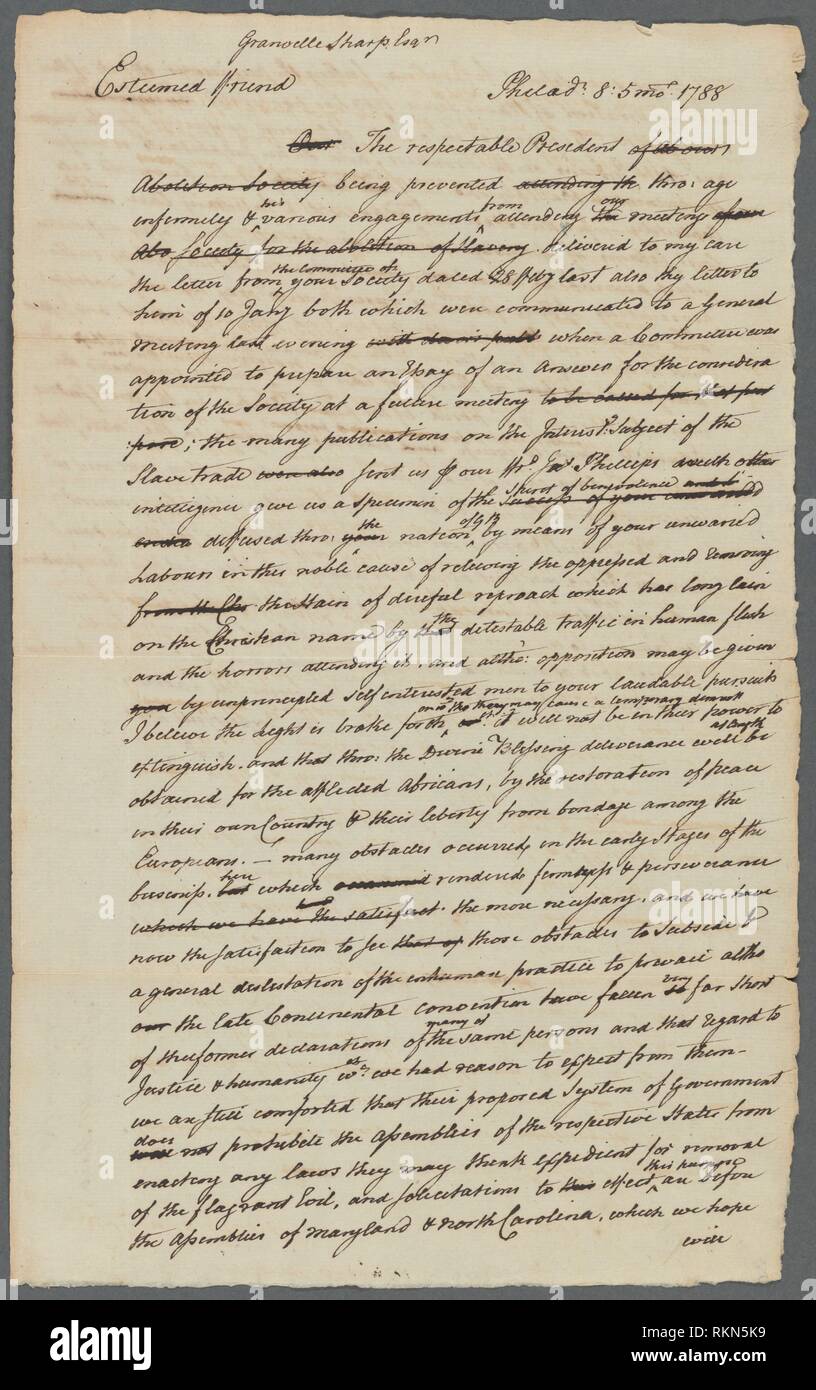 Granville Sharp Esqr
Esteemed Friend
Philada. 8: 5 mo. 1788
Our The respectable President of the our
Abolition Society being prevented attending the thro: age
infirmity & his various engagements from attending the our meetings of our
Abo Society for the abolition of Slavery delivered to my care
the letter from the Committee of your Society dated 28 Feby last also thy letter to
him of 10 Jany both which were communicated to a General
Meeting last evening when a Committee was
appointed to prepare an Essay of an Answer for the considera
tion of the Society at a future meeting to be called for that pur
pose; the many publications on the Interestg. Subject of the
Slave trade were also sent us by our Frd. Jas. Phillips with other
intelligence give us a specimen of the success of your Spirit of benevolence
diffused thro: your the nation of GB by means of your unwearied
Labours in this noble cause of relieving the oppressed and removing
from the Chr the Stain of direful reproach which has long lain
on the Christian name by the detestable traffic in human flesh
and the horrors attending it, and altho: opposition may be given
you by unprincipled self interested men to your laudable pursuits
I believe the Light is broke forth and tho they may cause a temporary it will not be in their power to
extinguish. and that thro: the Divine Blessing deliverance will at length be
obtained for the afflicted Africans, by the restoration of peace
in their own Country & their liberty from bondage among the
Europeans. — many obstacles occurred, in the early Stages of the
business here but which rendered firmness & perseverance
which we have the satisfact the more necessary. and we have
now the satisfaction to see that of those obstacles to subside &
a general detestation of the inhuman practice to prevail altho
our the late Continental convention have fallen so very far short
of the former declarations of many of the same persons and that regard to
Justice & humanity wch. we had reason to expect from them—
we are still comforted that their proposed System of Government
does not prohibite the Assemblies of the respective States from
enacting any laws they may think expedient for removal
of the flagrant Evil, and solicitations to this effect this purpose are before
the Assemblies of Maryland & North Carolina, which we hope
will
alamy
Image ID: RKN5K9
www.alamy.com